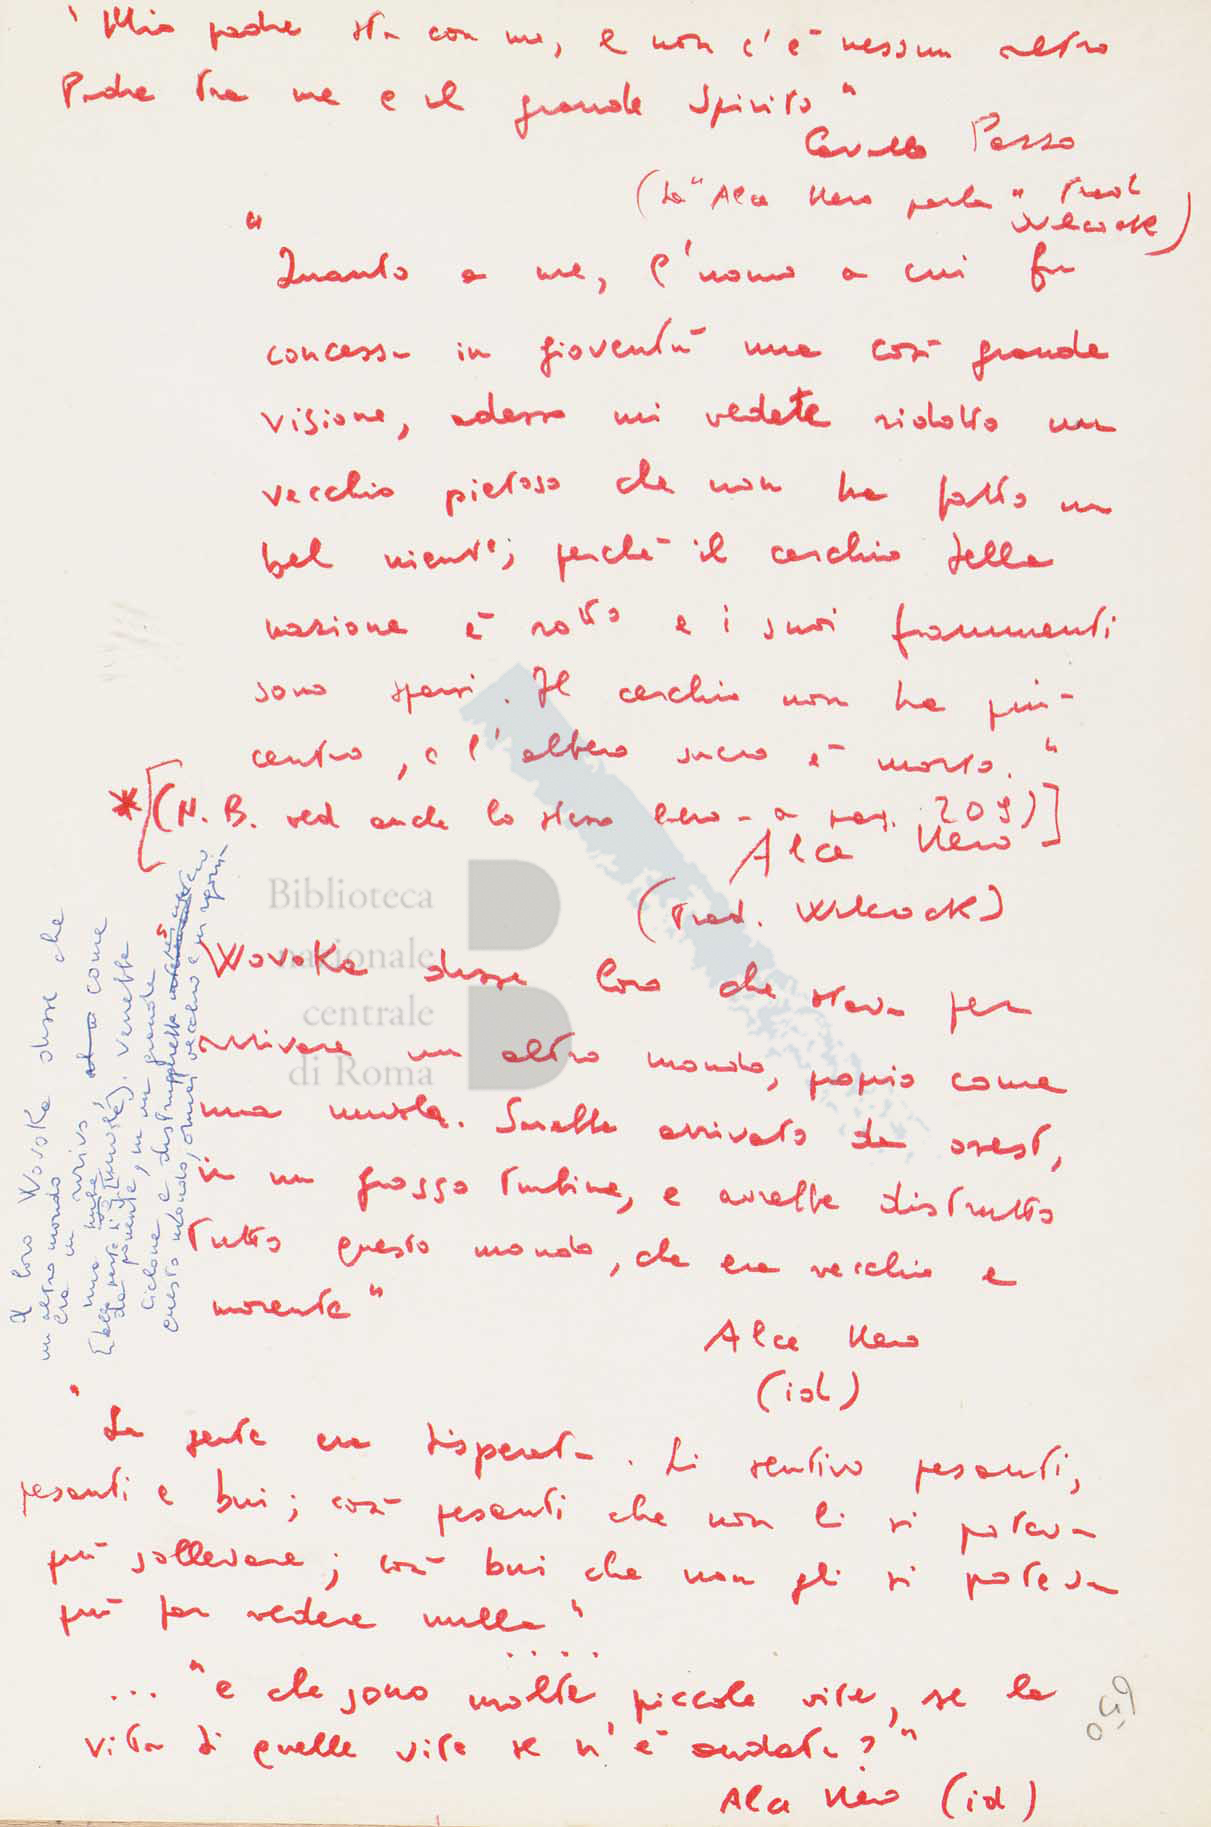 "Mio padre sta con me, e non c'è nessun altro
Padre tra me e il grande Spirito"
Cavallo Pazzo
(Da "Alce Nero parla" trad.
Wilcock)
"Quanto a me, l'uomo a cui fu
concessa in gioventù una così grande
visione, adesso mi vedete ridotto un
vecchio pietoso che non ha fatto un
bel niente; perché il cerchio della
nazione è rotto e i suoi frammenti
sono sparsi. Il cerchio non ha più
centro, e l'albero sacro è morto."
*[(N.B. ved anche lo stesso libro a pag. 209)]
Alce Nero
(trad. Wilcock)
Biblioteca
nazionale
centrale
di Roma
Wovoka disse loro che stava per
arrivare un altro mondo, proprio come
una nuvola. Sarebbe arrivato da ovest,
in un grosso turbine, e avrebbe distrutto
tutto questo mondo, che era vecchio e
morente"
Alce Nero
(id)
"La gente era disperata. Li sentivo pesanti,
pesanti e bui; così pesanti che non li si poteva
più sollevare; così bui che non gli si poteva
più far vedere nulla"
....
... "e che sono molte piccole vite, se la
vita di quelle vite se n'è andata?"
Alce Nero (id)
E loro Wovoka disse che
un altro mondo
era in arrivo, come
una nube
da ponente, in un grande
ciclone e distruggerebbe
questo mondo, ormai vecchio e in agonia